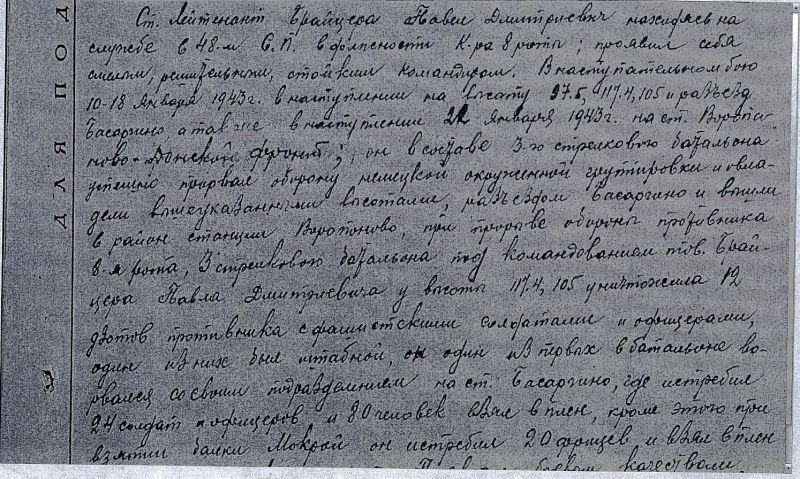 Ст. Лейтенант Брайцера Павел Дмитриевич находясь на
службе в 48-м С.П. в должности К-ра 8 роты; проявил себя
смелым, решительным, стойким командиром. В наступательном бою
10-18 января 1943г. в наступлении на высоту 97.5, 117.4, 105 и разъезд
Басаргино а также в наступлении 22 января 1943г. на ст. Воропо-
ново-Донской фронт; он в составе 3-го стрелкового батальона
успешно прорвал оборону немецкой окруженной группировки и овла-
дели вышеуказанными высотами, разъездом Басаргино и вышли
в район станции Воропоново, при прорыве обороны противника
8-я рота, 3 стрелкового батальона под командованием тов. Брай-
цера Павла Дмитриевича у высоты 117.4, 105 уничтожила 12
дзотов противника с фашистскими солдатами и офицерами,
один из них был штабной, он один из первых в батальоне во-
рвался со своим подразделением на ст. Басаргино, где истребил
24 солдат и офицеров и 80 человек взял в плен, кроме этого при
взятии балки Мокрой он истребил 20 фрицев и взял в плен
боевым качествами
ДЛЯ ПОД